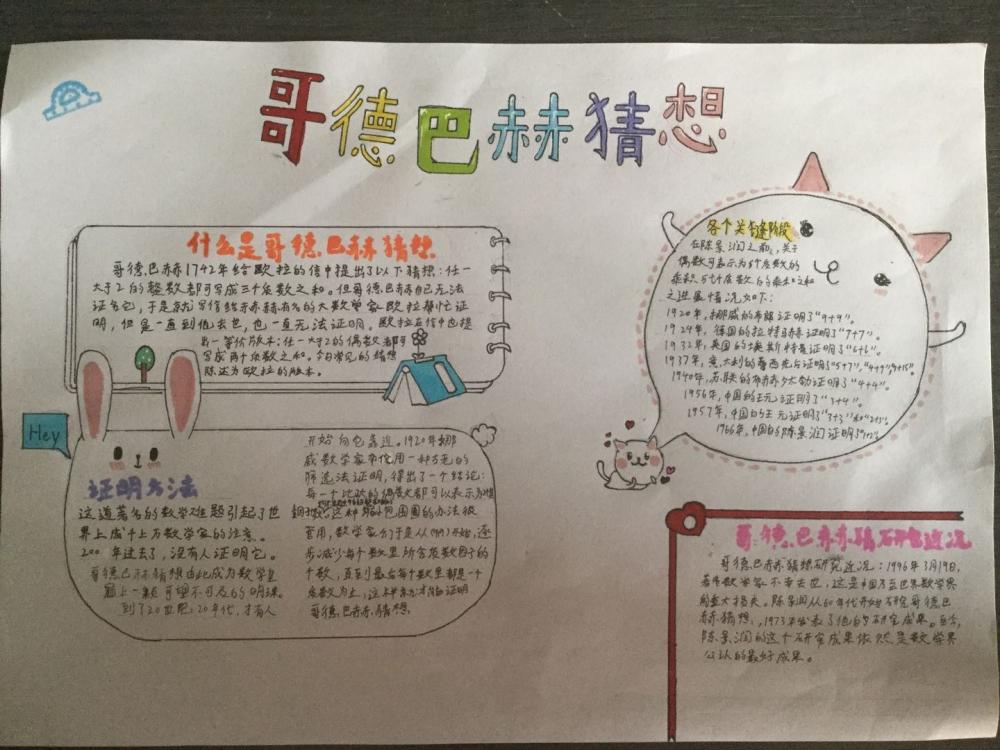 哥德巴赫猜想
什么是哥德巴赫猜想
哥德巴赫1742年给欧拉的信中提出了以下猜想：任一
大于2的整数都可写成三个质数之和。但哥德巴赫自己无法
证明它，于是就写信给赫赫有名的大数学家欧拉帮忙证
明，但是一直到他去世，也一直无法证明。欧拉在信中也提
出一等价版本：任一大于2的偶数都可
写成两个质数之和。今日常见的猜想
陈述为欧拉的版本。
Hey
证明方法
这道著名的数学难题引起了世
界上成千上万数学家的注意。
200年过去了，没有人证明它。
哥德巴赫猜想由此成为数学皇
冠上一颗可望不可及的明珠。
到了20世纪20年代，才有人
开始向它靠近。1920年挪
威数学家布伦用一种古老的
筛选法证明，得出了一个结论：
每一个比大的偶数都可以表示为
这种缩小包围圈的办法很
管用，数学家们于是从（9+9）开始，逐
步减少每个数里所含质数因子的
个数，直到最后每个数里都是一个
质数为止，这样就证明
哥德巴赫猜想
各个关键阶段
在陈景润之前，关于
偶数可表示为s个质数的
乘积与t个质数的乘积之和
之进展情况如下：
1920年，挪威的布朗证明了“9+9”。
1924年，德国的拉特马赫证明了“7+7”。
1932年，英国的埃斯特曼证明了“6+6”。
1937年，意大利的蕾西先后证明了“5+7”，“4+9”，
1940年，苏联的布赫夕太勃证明了“4+4”。
1956年，中国的王元证明了“3+4”。
1957年，中国的王元证明了“3+3”和“2+3”。
1966年，中国的陈景润证明了“1+2”。
哥德巴赫猜研究近况
哥德巴赫猜想研究近况：1996年3月19日，
著名数学家不幸去世，这是中国乃至世界数学界
的重大损失。陈景润从60年代开始研究哥德巴
赫猜想，1973年发表了他的研究成果。至今，
陈景润的这个研究成果依然是数学界
公认的最好成果。